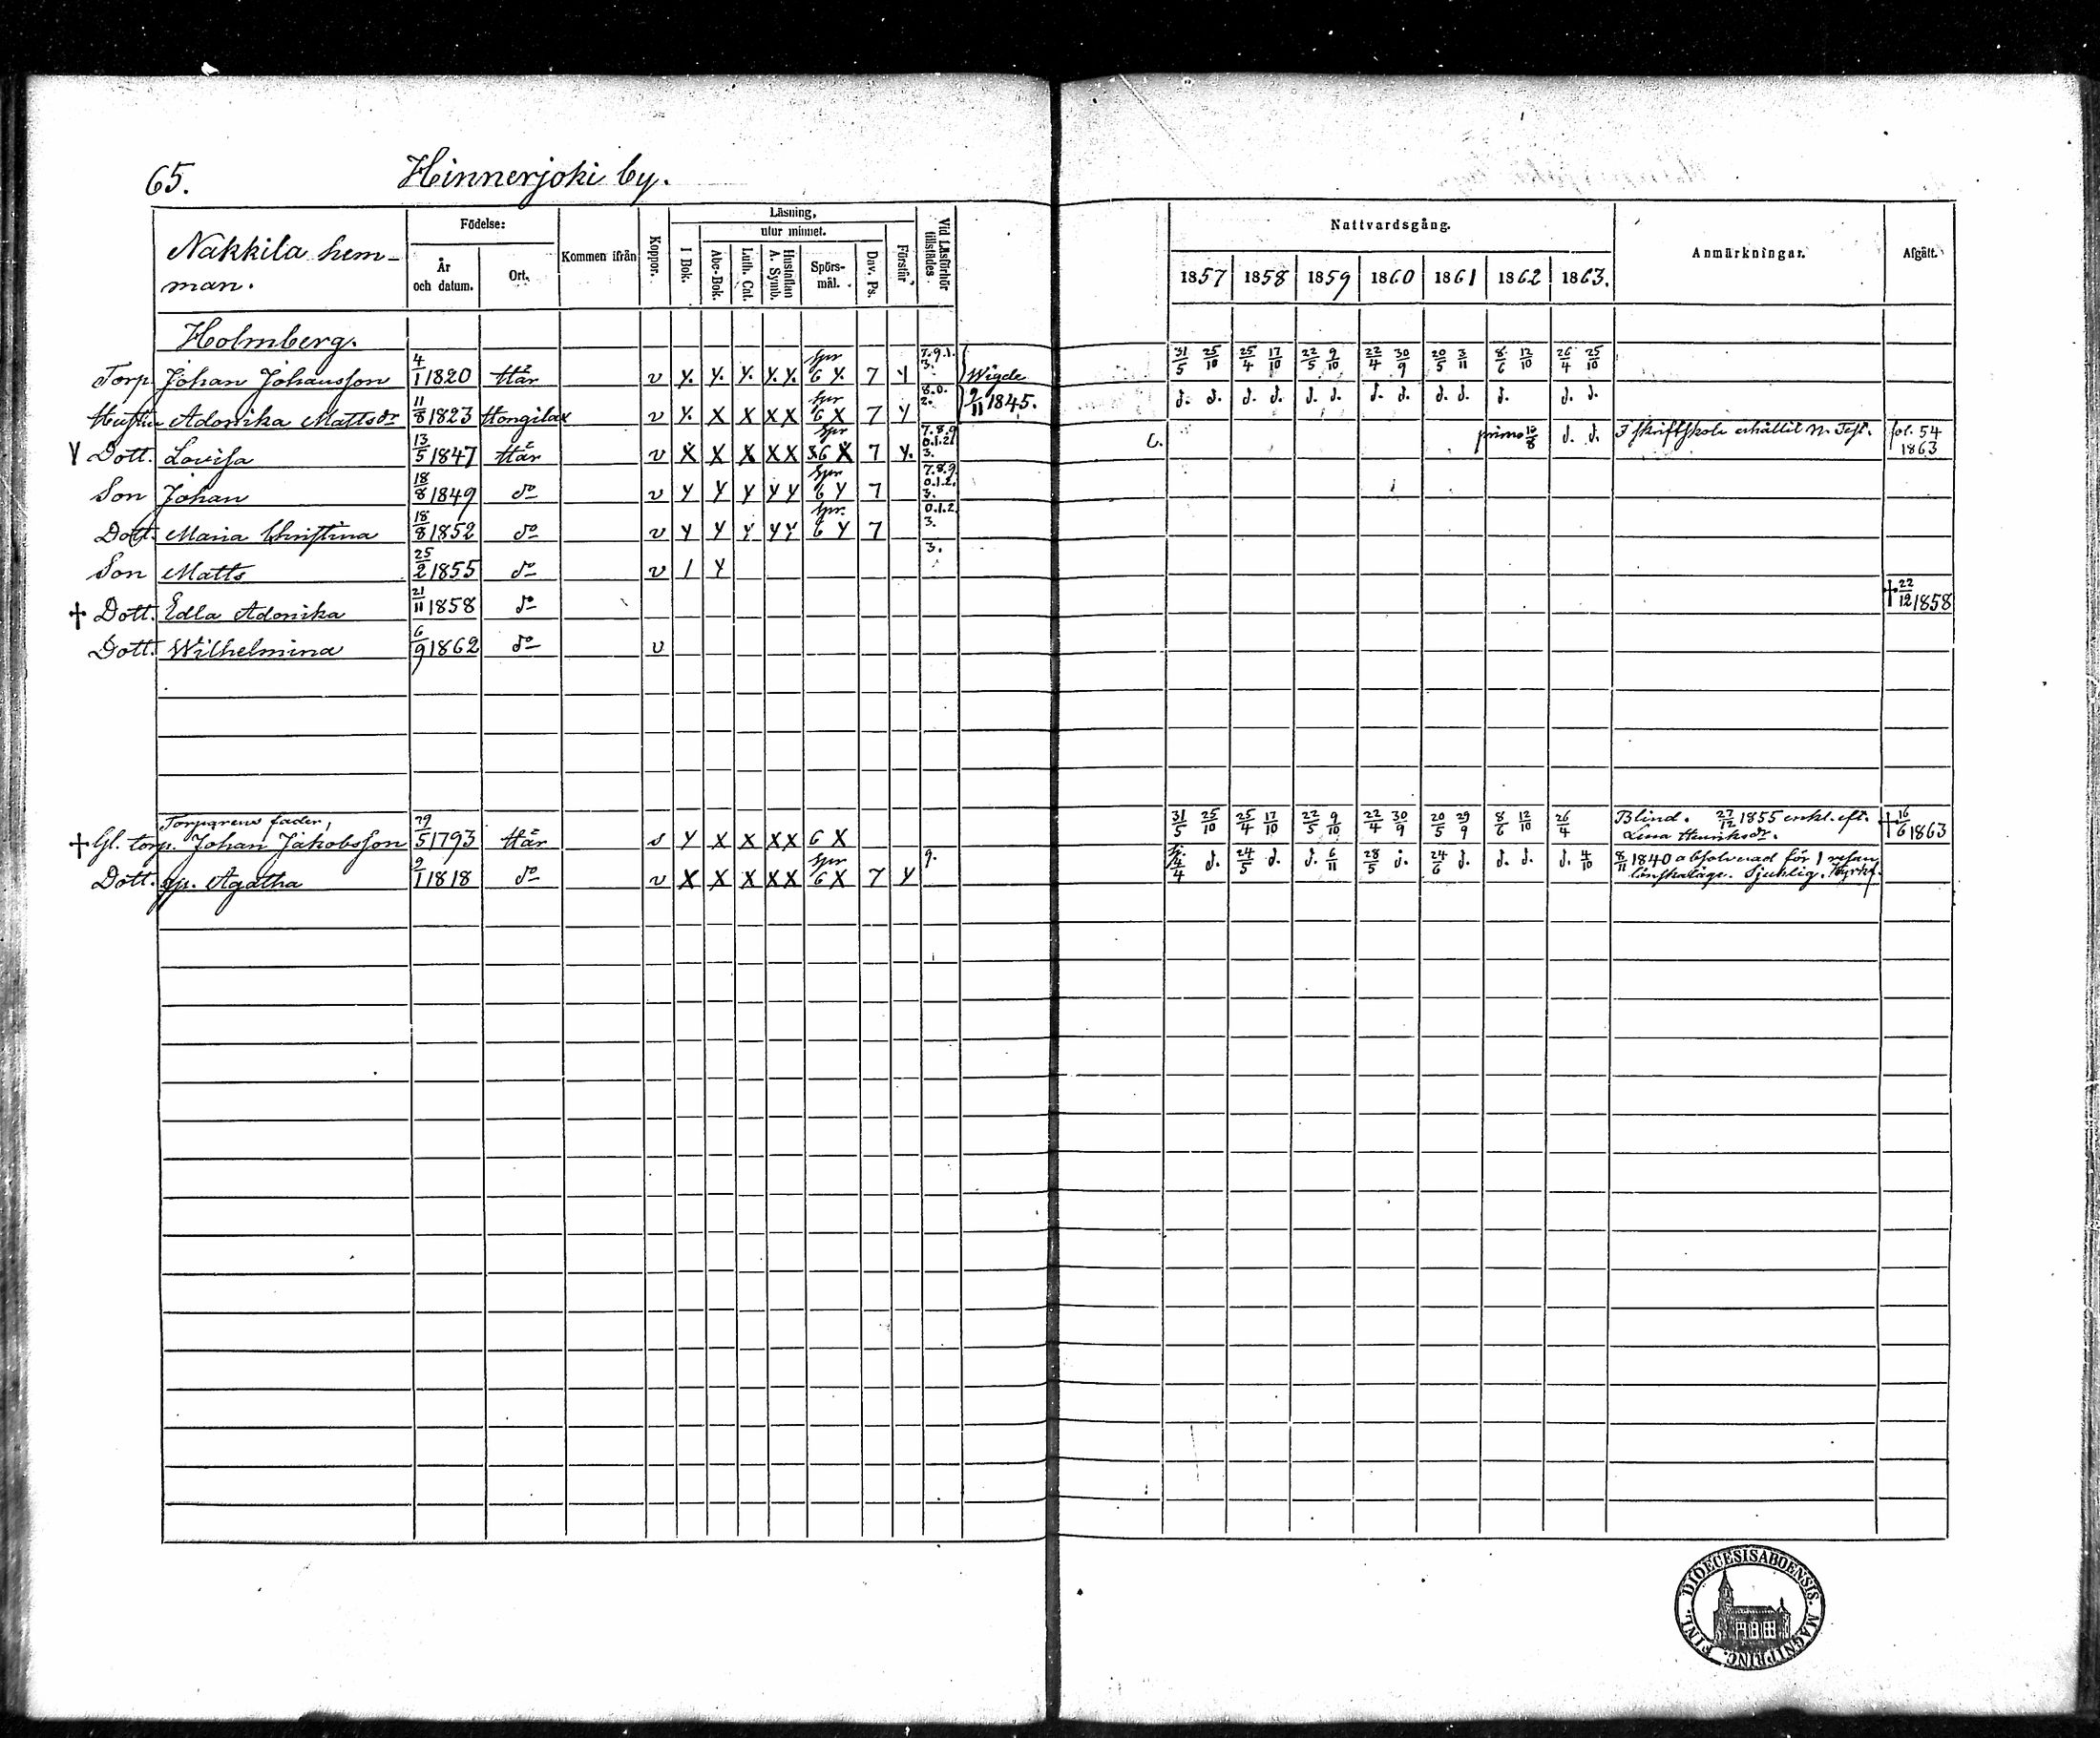 65. Hinnerjoki by.
Nakkila hem-
man.
Födelse:
År
och datum.
Ort.
Kommen ifrån
Koppor.
Läsning,
utur minnet.
I Bok.
Abc-Bok.
Luth. Cat.
Hustaflan
A. Symb.
Spörs-
mål.
Dav. Ps.
Förstår.
Vid Läsförhör
tillstädes
Nattvardsgång.
1857 1858 1859 1860 1861 1862 1863.
Anmärkningar.
Afgått.
Holmberg.
Torp. Johan Johansson 4/1 1820 Här v Y. Y. Y. Y. Y. Spr 6 Y. 7 Y 7.9.1. 3. Wigde 31/5 25/10 25/4 17/10 22/5 9/10 22/4 30/9 20/5 3/11 8/6 12/10 26/4 25/10
Hustru Adamika Mattsdr 11/8 1823 Hongilax v Y. X X X X Spr 6 X 7 Y 8.0. 2. 9/11 1845. d. d. d. d. d. d. d. d. d. d. d. d. d.
Y Dott. Lovisa 13/5 1847 Här v X X X X X Spr 6 X 7 Y. 7.8.9 0.1.2. 3. C. primo d. d. I skriftskola erhållit N. Test. fol. 54
1863
Son Johan 18/8 1849 do v Y Y Y Y Y Spr 6 Y 7 7.8.9. 0.1.2. 3.
Dott. Maria Christina 18/8 1852 do v Y Y Y Y Y Spr. 6 Y 7 0.1.2. 3.
Son Matts 25/2 1855 do v 1 Y 3.
† Dott. Edla Adonika 21/11 1858 do † 22/12 1858
Dott. Wilhelmina 6/9 1862 do v
Torparens fader,
† Gl. torp. Johan Jakobsson 29/5 1793 Här s Y X X X X 6 X 31/5 25/10 25/4 17/10 22/5 9/10 22/4 30/9 20/5 29/9 8/6 12/10 26/4 Blind. 27/12 1855 enkl. eft. † 16/6 1863
Lena Henriksdr.
Dott. Agatha 9/1 1818 do v X X X X X Spr 6 X 7 Y 9. 4/4 d. 24/5 d. d. 6/11 28/5 d. 24/6 d. d. d. d. 4/10 8/11 1840 absolverad för 1 resan
lönskaläge. Sjuklig.
DIOECESIS ABOENSIS. MAGNI PRINC. FINL.